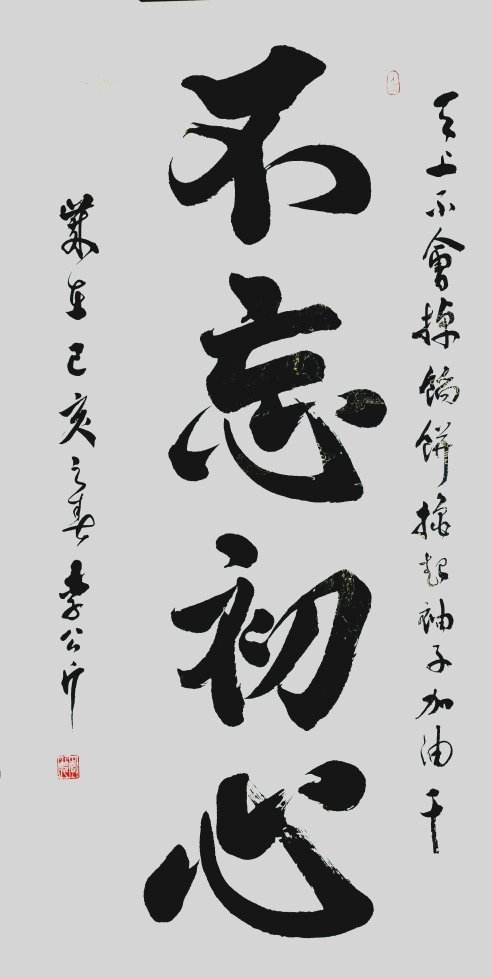 天上不會掉餡餅擼起袖子加油干
不忘初心
歲在己亥之春李公